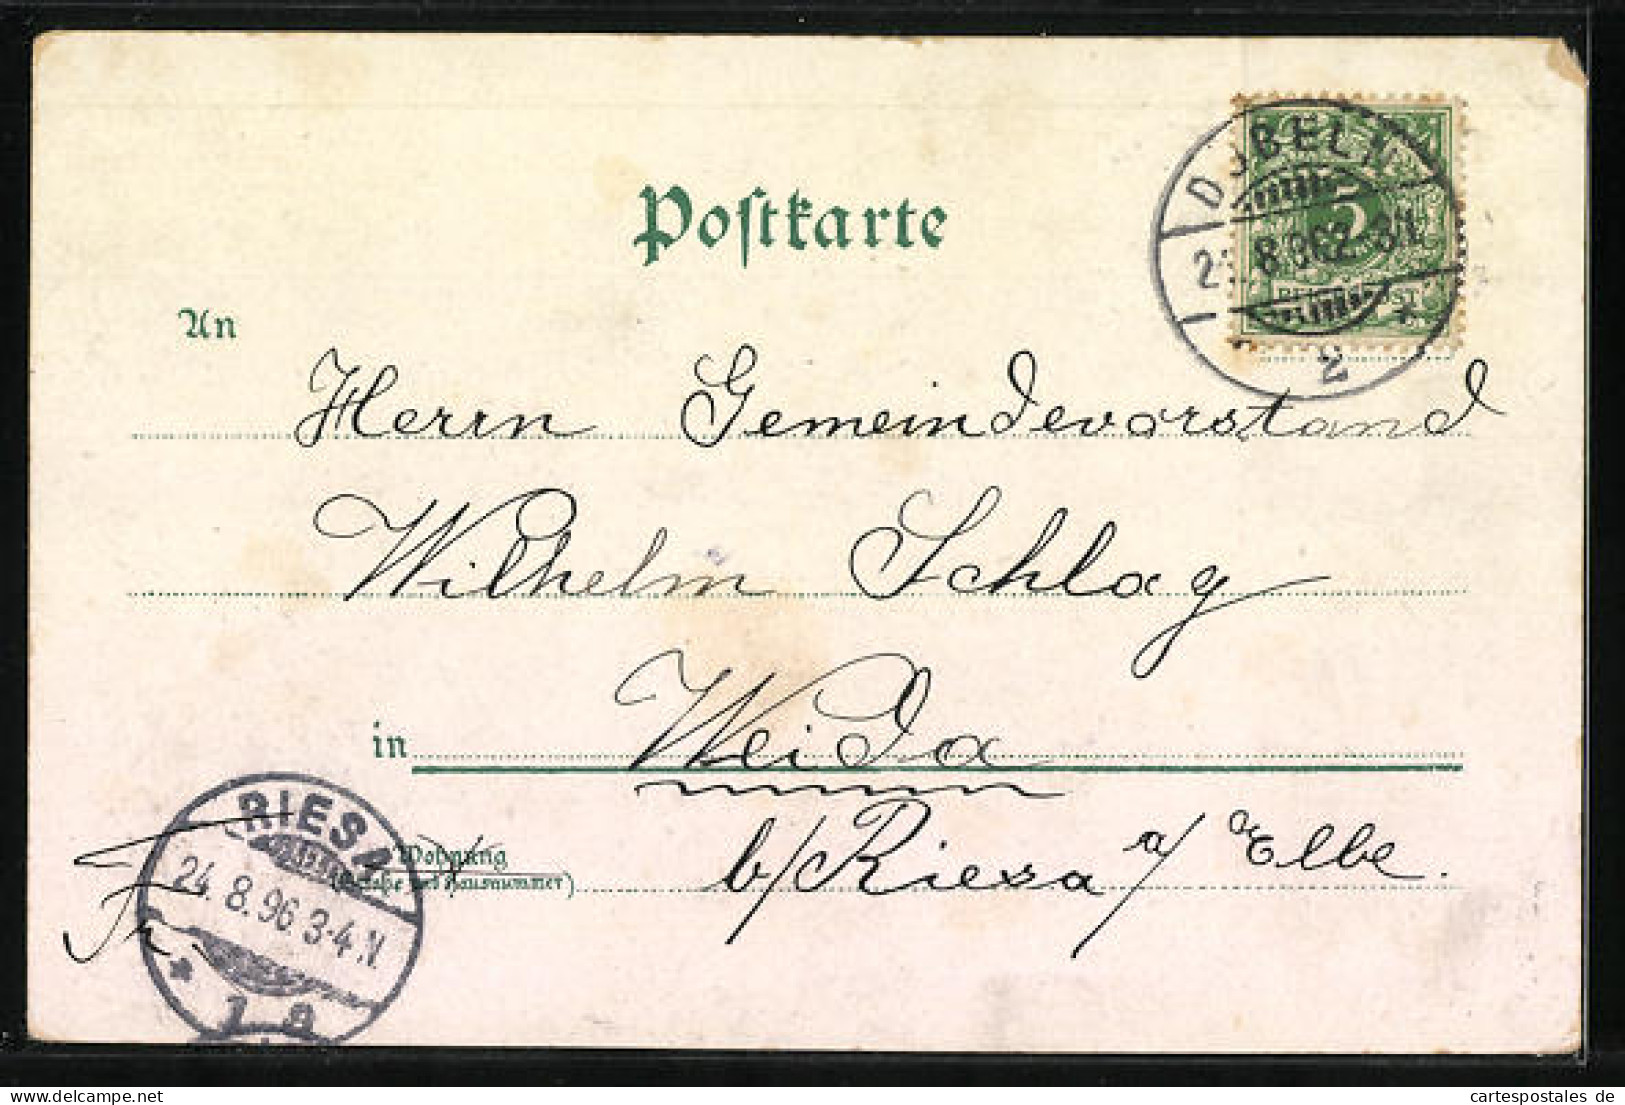 Postkarte
DÖBELN
8.96 2-3N.
2
5
REICHSPOST
An
Herrn Gemeindevorstand
Wilhelm Schlag
in Weida
b/Riesa a/Elbe.
Wohnung
(Straße und Hausnummer)
Fr.
RIESA
24.8.96 3-4N
* 1 a
www.cartespostales.de